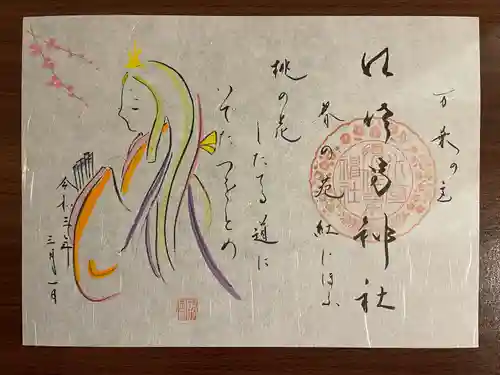 万葉の
神社
春の苑 紅にほふ
桃の花
したてる道に
いでたつをとめ
令和三年
三月一日